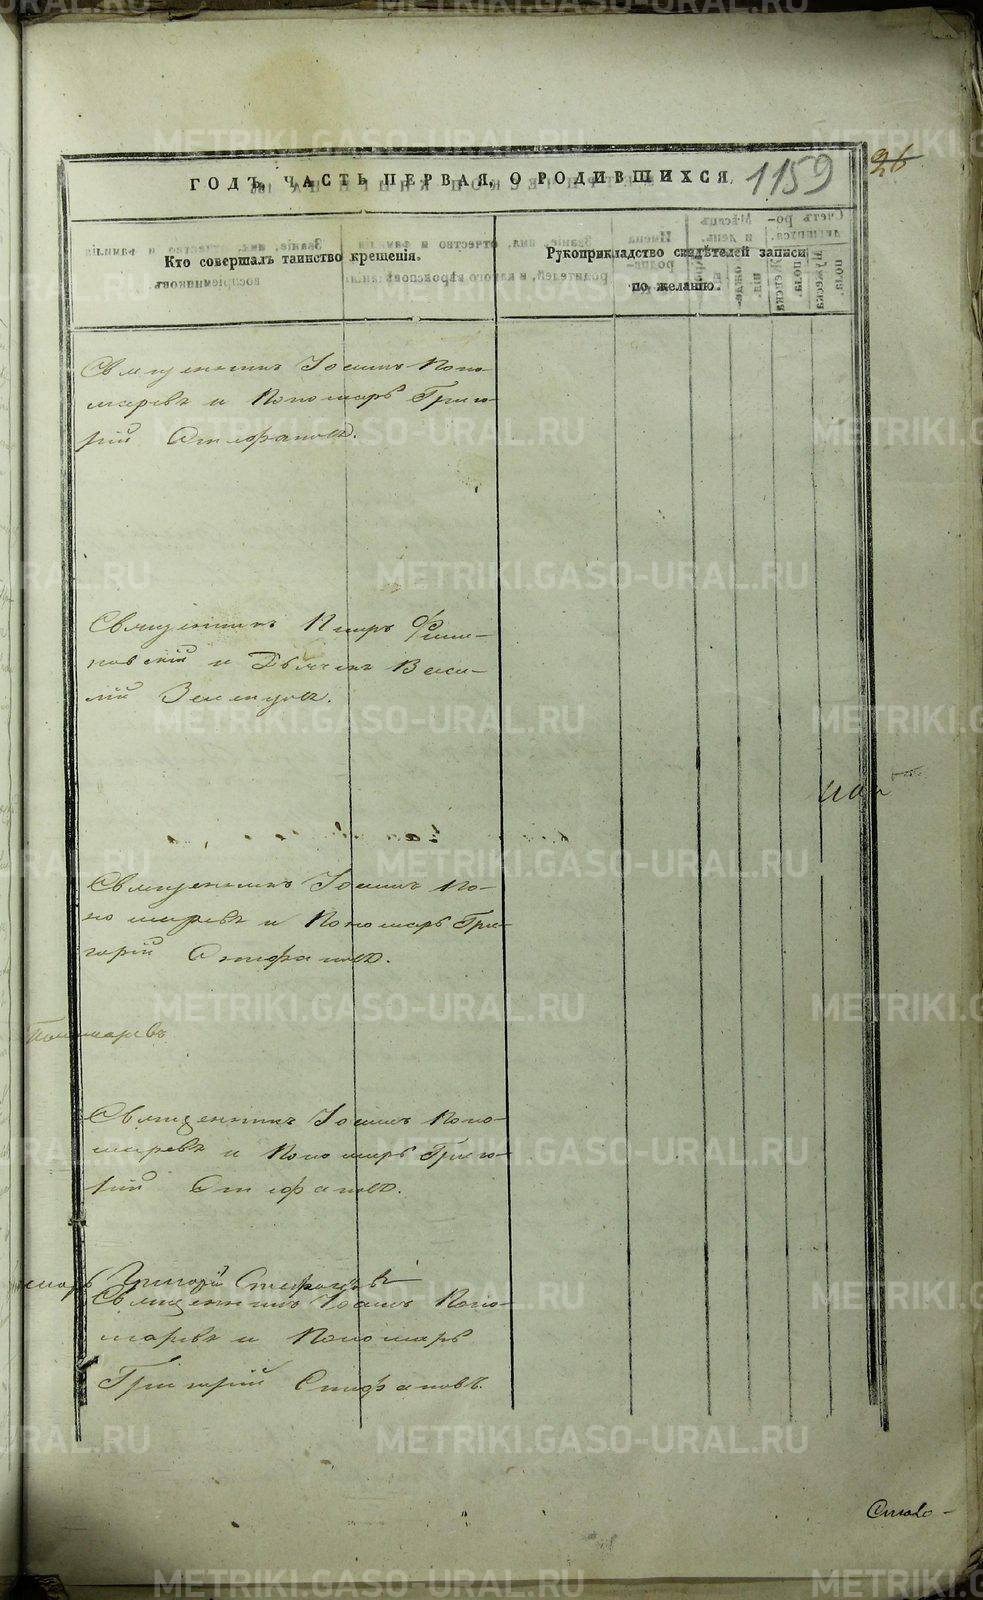 ГОДЪ, ЧАСТЬ ПЕРВАЯ, О РОДИВШИХСЯ.
1159
26
Кто совершалъ таинство крещенія.
Рукоприкладство свидѣтелей записи
по желанію.
Священникъ Іоаннъ Поно-
маревъ и Пономарь Григо-
рій Стефановъ.
Священникъ Петръ
и Дьячекъ Васи-
лій
Священникъ Іоаннъ По-
номаревъ и Пономарь Гри-
горій Стефановъ.
Пономаревъ
Священникъ Іоаннъ Поно-
маревъ и Пономарь Григо-
рій Стефановъ.
марь Григорій Стефановъ
Священникъ Іоаннъ Поно-
маревъ и Пономарь
Григорій Стефановъ.
METRIKI.GASO-URAL.RU